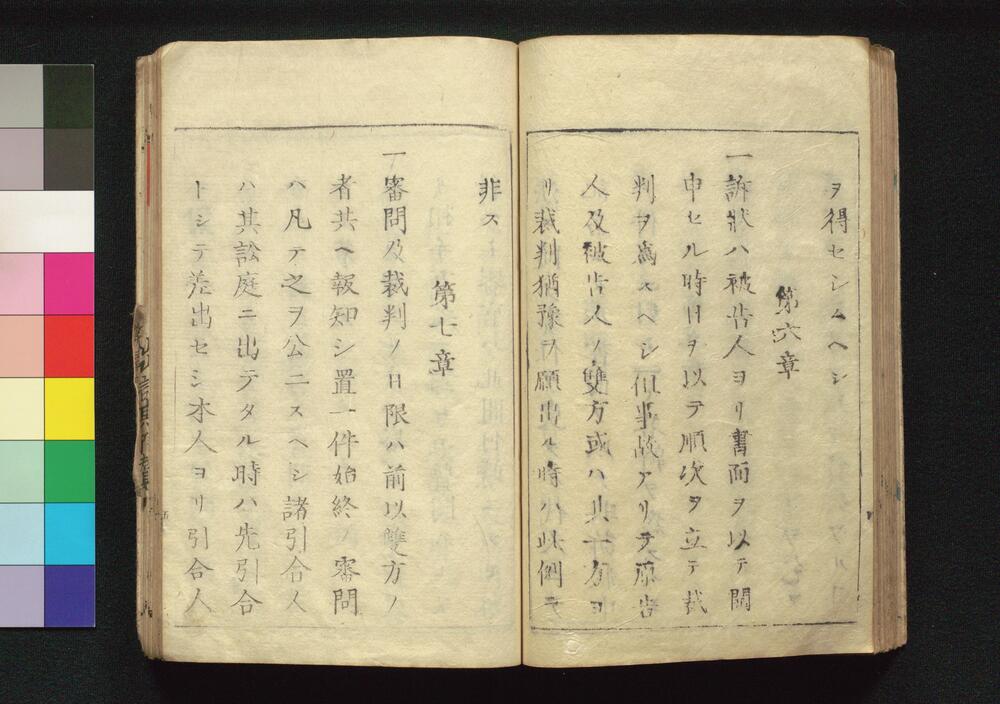 ヲ得セシムヘシ
第六章
一訴狀ハ被告人ヨリ書面ヲ以テ開
申セル時日ヲ以テ順次ヲ立テ裁
判ヲ爲スヘシ但事故アリテ原告
人及被告人ノ雙方或ハ其一方ヨ
リ裁判猶豫ヲ願出ル時ハ此例ニ
非ス
第七章
一審問及裁判ノ日限ハ前以雙方ノ
者共ヘ報知シ置一件始終ノ審問
ハ凡テ之ヲ公ニスヘシ諸引合人
ハ其訟庭ニ出テタル時ハ先引合
トシテ差出セシ本人ヨリ引合人